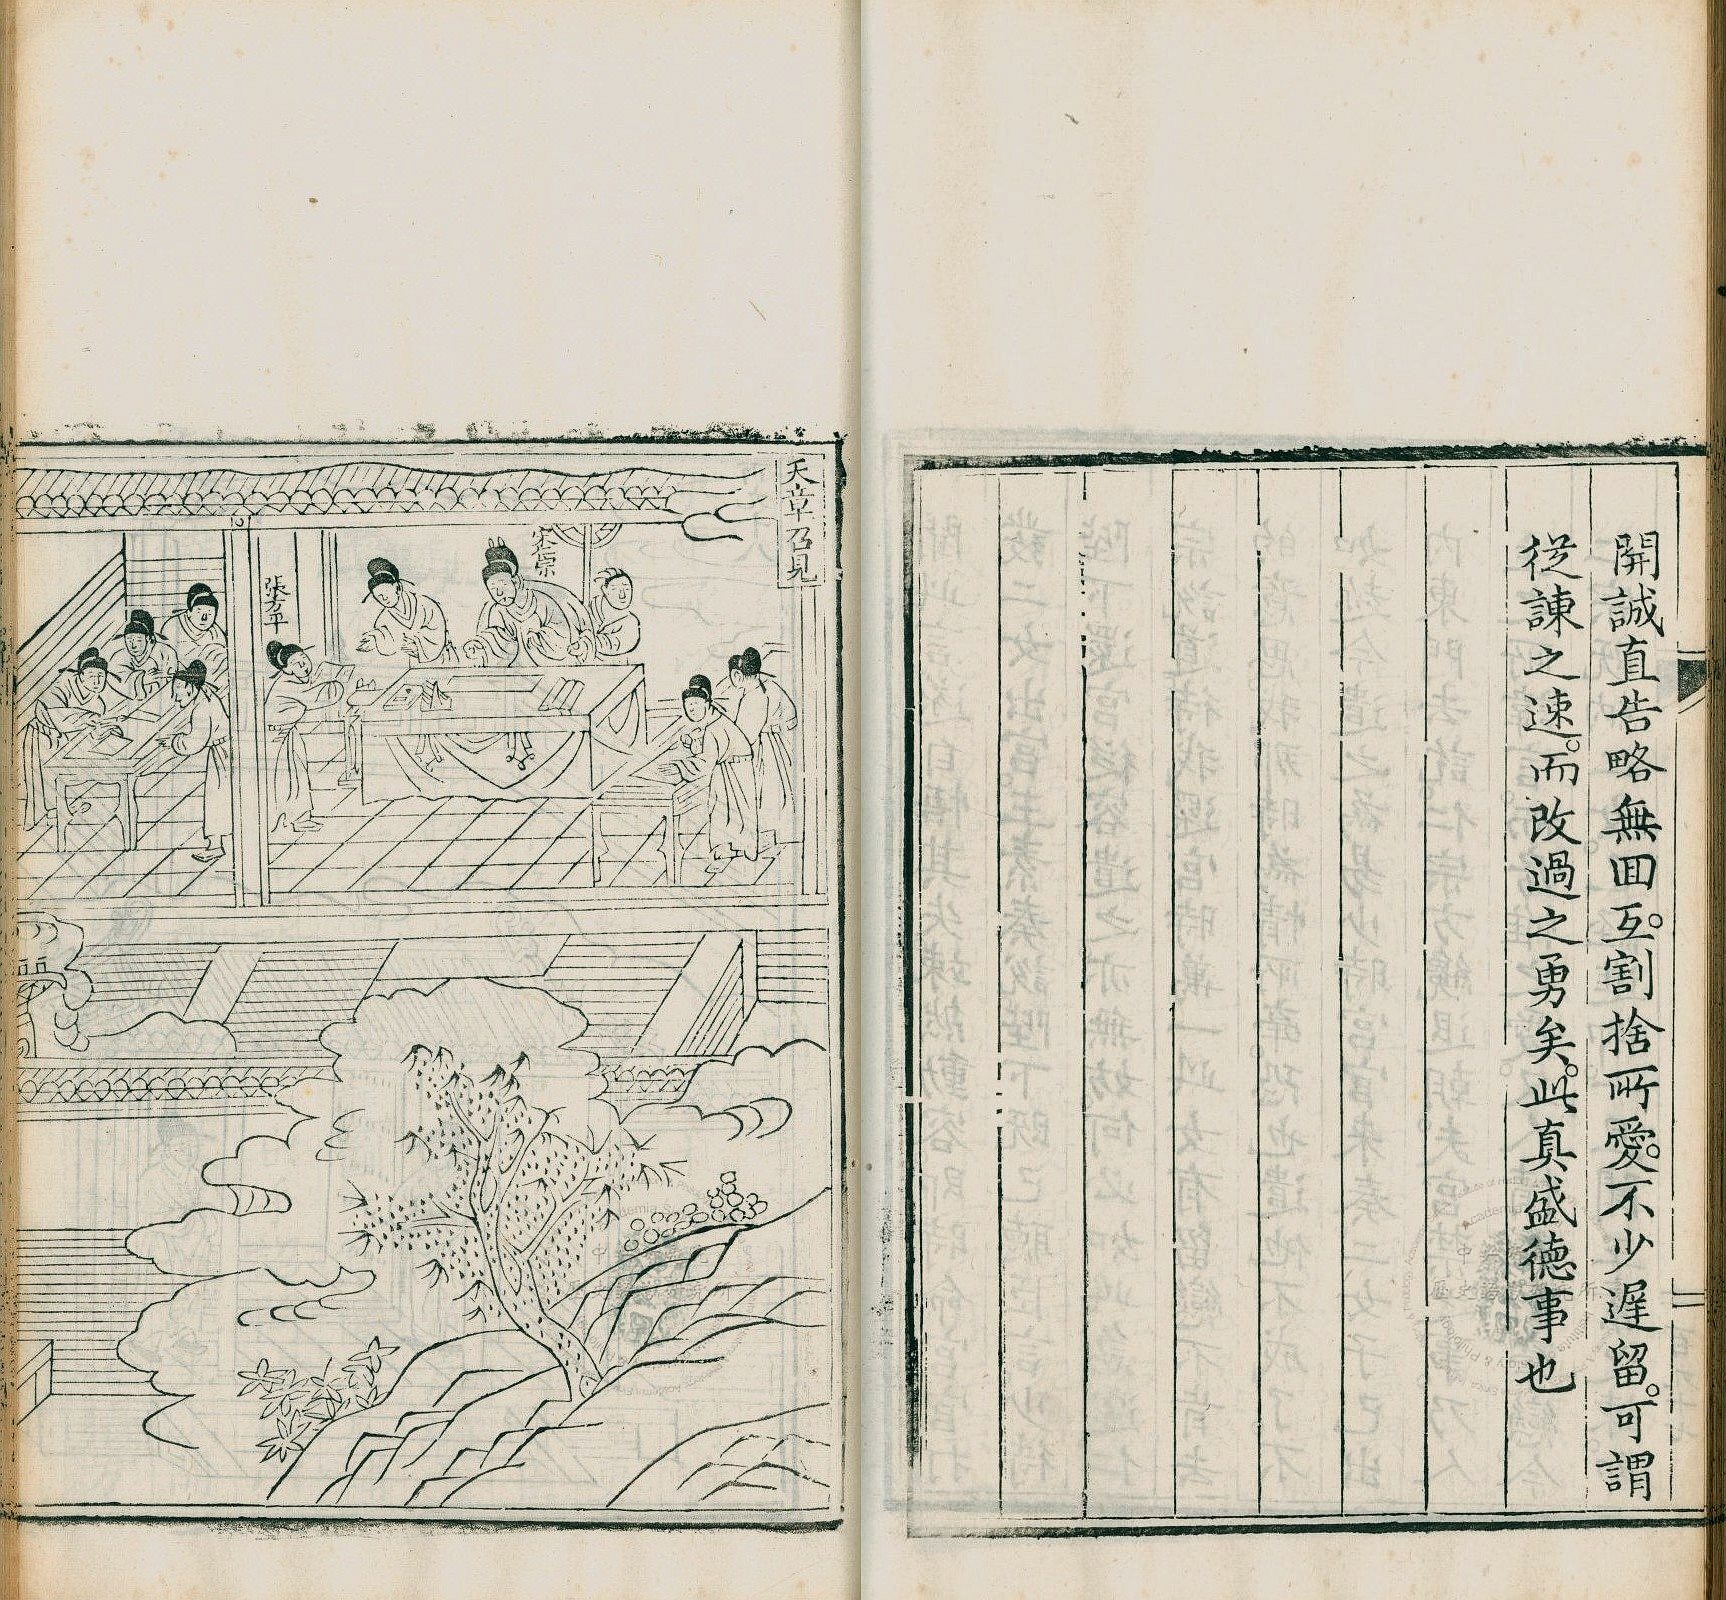 開誠直告略無回互割捨所愛不少遅留可謂
從諫之速而改過之勇矣此真盛德事也
天章召見
宋仁宗
張方平